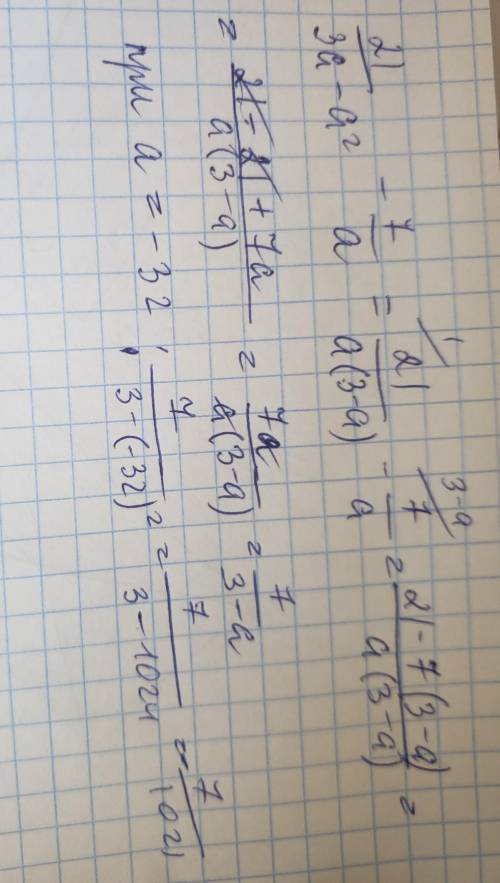 21/(3a - a²) - 7/a = 21/(a(3-a)) - 7/a = (21 - 7(3-a))/(a(3-a)) =
= (21 - 21 + 7a)/(a(3-a)) = 7a/(a(3-a)) = 7/(3-a)
при a = -32 : 7/(3-(-32)²) = 7/(3-1024) = -7/1021